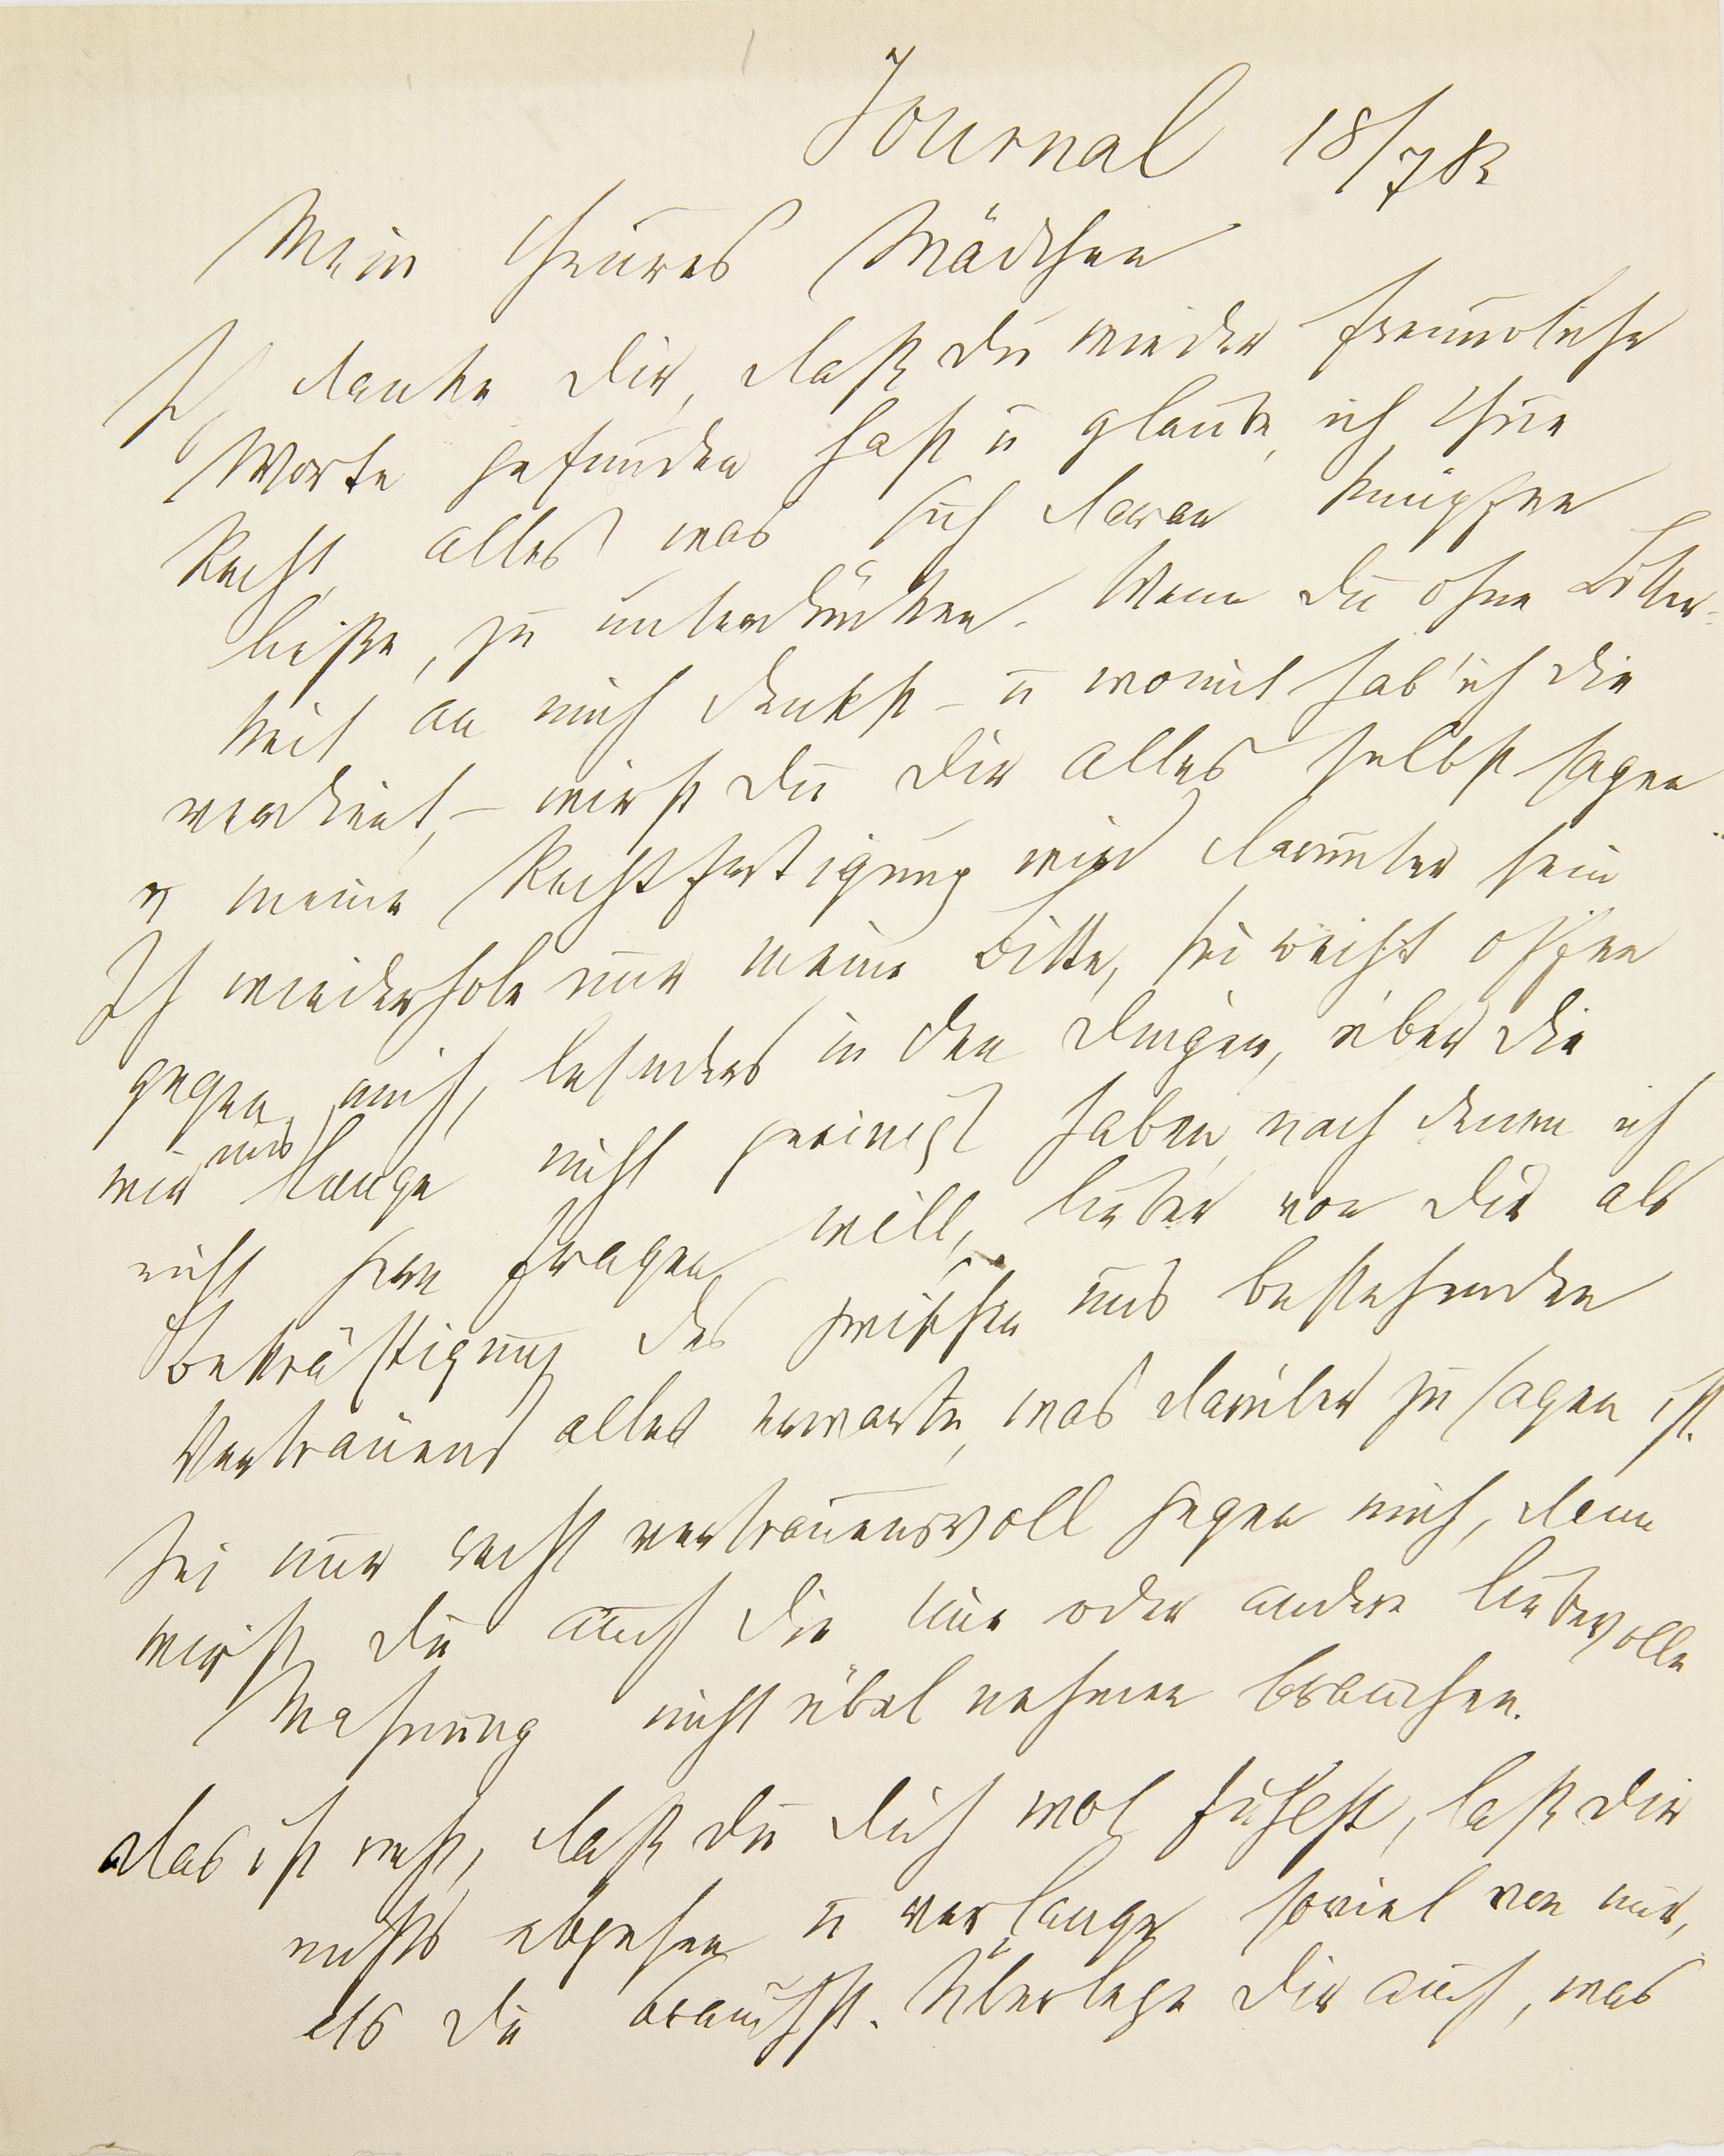 Journal 18/7 82
Mein theures Mädchen
Ich danke Dir, daß Du wieder freundliche
Worte gefunden hast u glaube, ich thue
Recht, alles was sich daran knüpfen
ließe, zu unterdrücken. Wenn Du ohne Bitter-
keit an mich denkst – u womit hab' ich die
verdient, – wirst Du Dir alles selbst sagen
u meine Rechtfertigung wird darunter sein
Ich wiederhole nur meine Bitte, sei recht offen
gegen mich, besonders in den Dingen, über die
wir uns lange nicht geeinigt haben, nach denen ich
nicht fragen will, lieber von Dir als
Bekräftigung des zwischen uns bestehenden
Vertrauens alles erwarte, was darüber zu sagen ist.
Sei nur recht vertrauensvoll gegen mich, dann
wirst Du auch die eine oder andere liebevolle
Mahnung nicht übel nehmen brauchen.
Das ist recht, daß Du Dich wol fühlst, laß Dir
nichts abgehen u verlange soviel von mir,
als Du brauchst. Überlege Dir auch, was